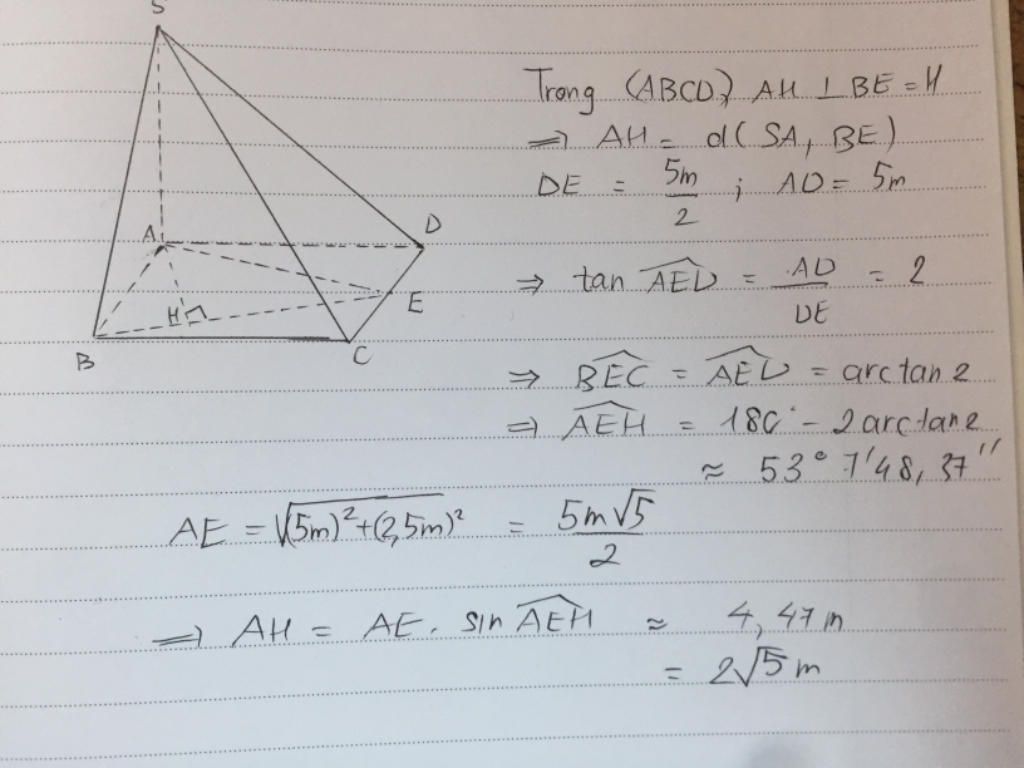 S
A
D
H
E
B
C
Trong (ABCD) AH ⊥ BE = H
⇒ AH = d(SA, BE)
DE = 5m/2 ; AD = 5m
⇒ tan \widehat{AED} = AD/DE = 2
⇒ \widehat{BEC} = \widehat{AED} = arctan 2
⇒ \widehat{AEH} = 180° - 2 arctan 2
≈ 53° 7' 48,37''
AE = √((5m)² + (2,5m)²) = 5m√5/2
⇒ AH = AE . sin \widehat{AEH} ≈ 4,47m
= 2√5 m